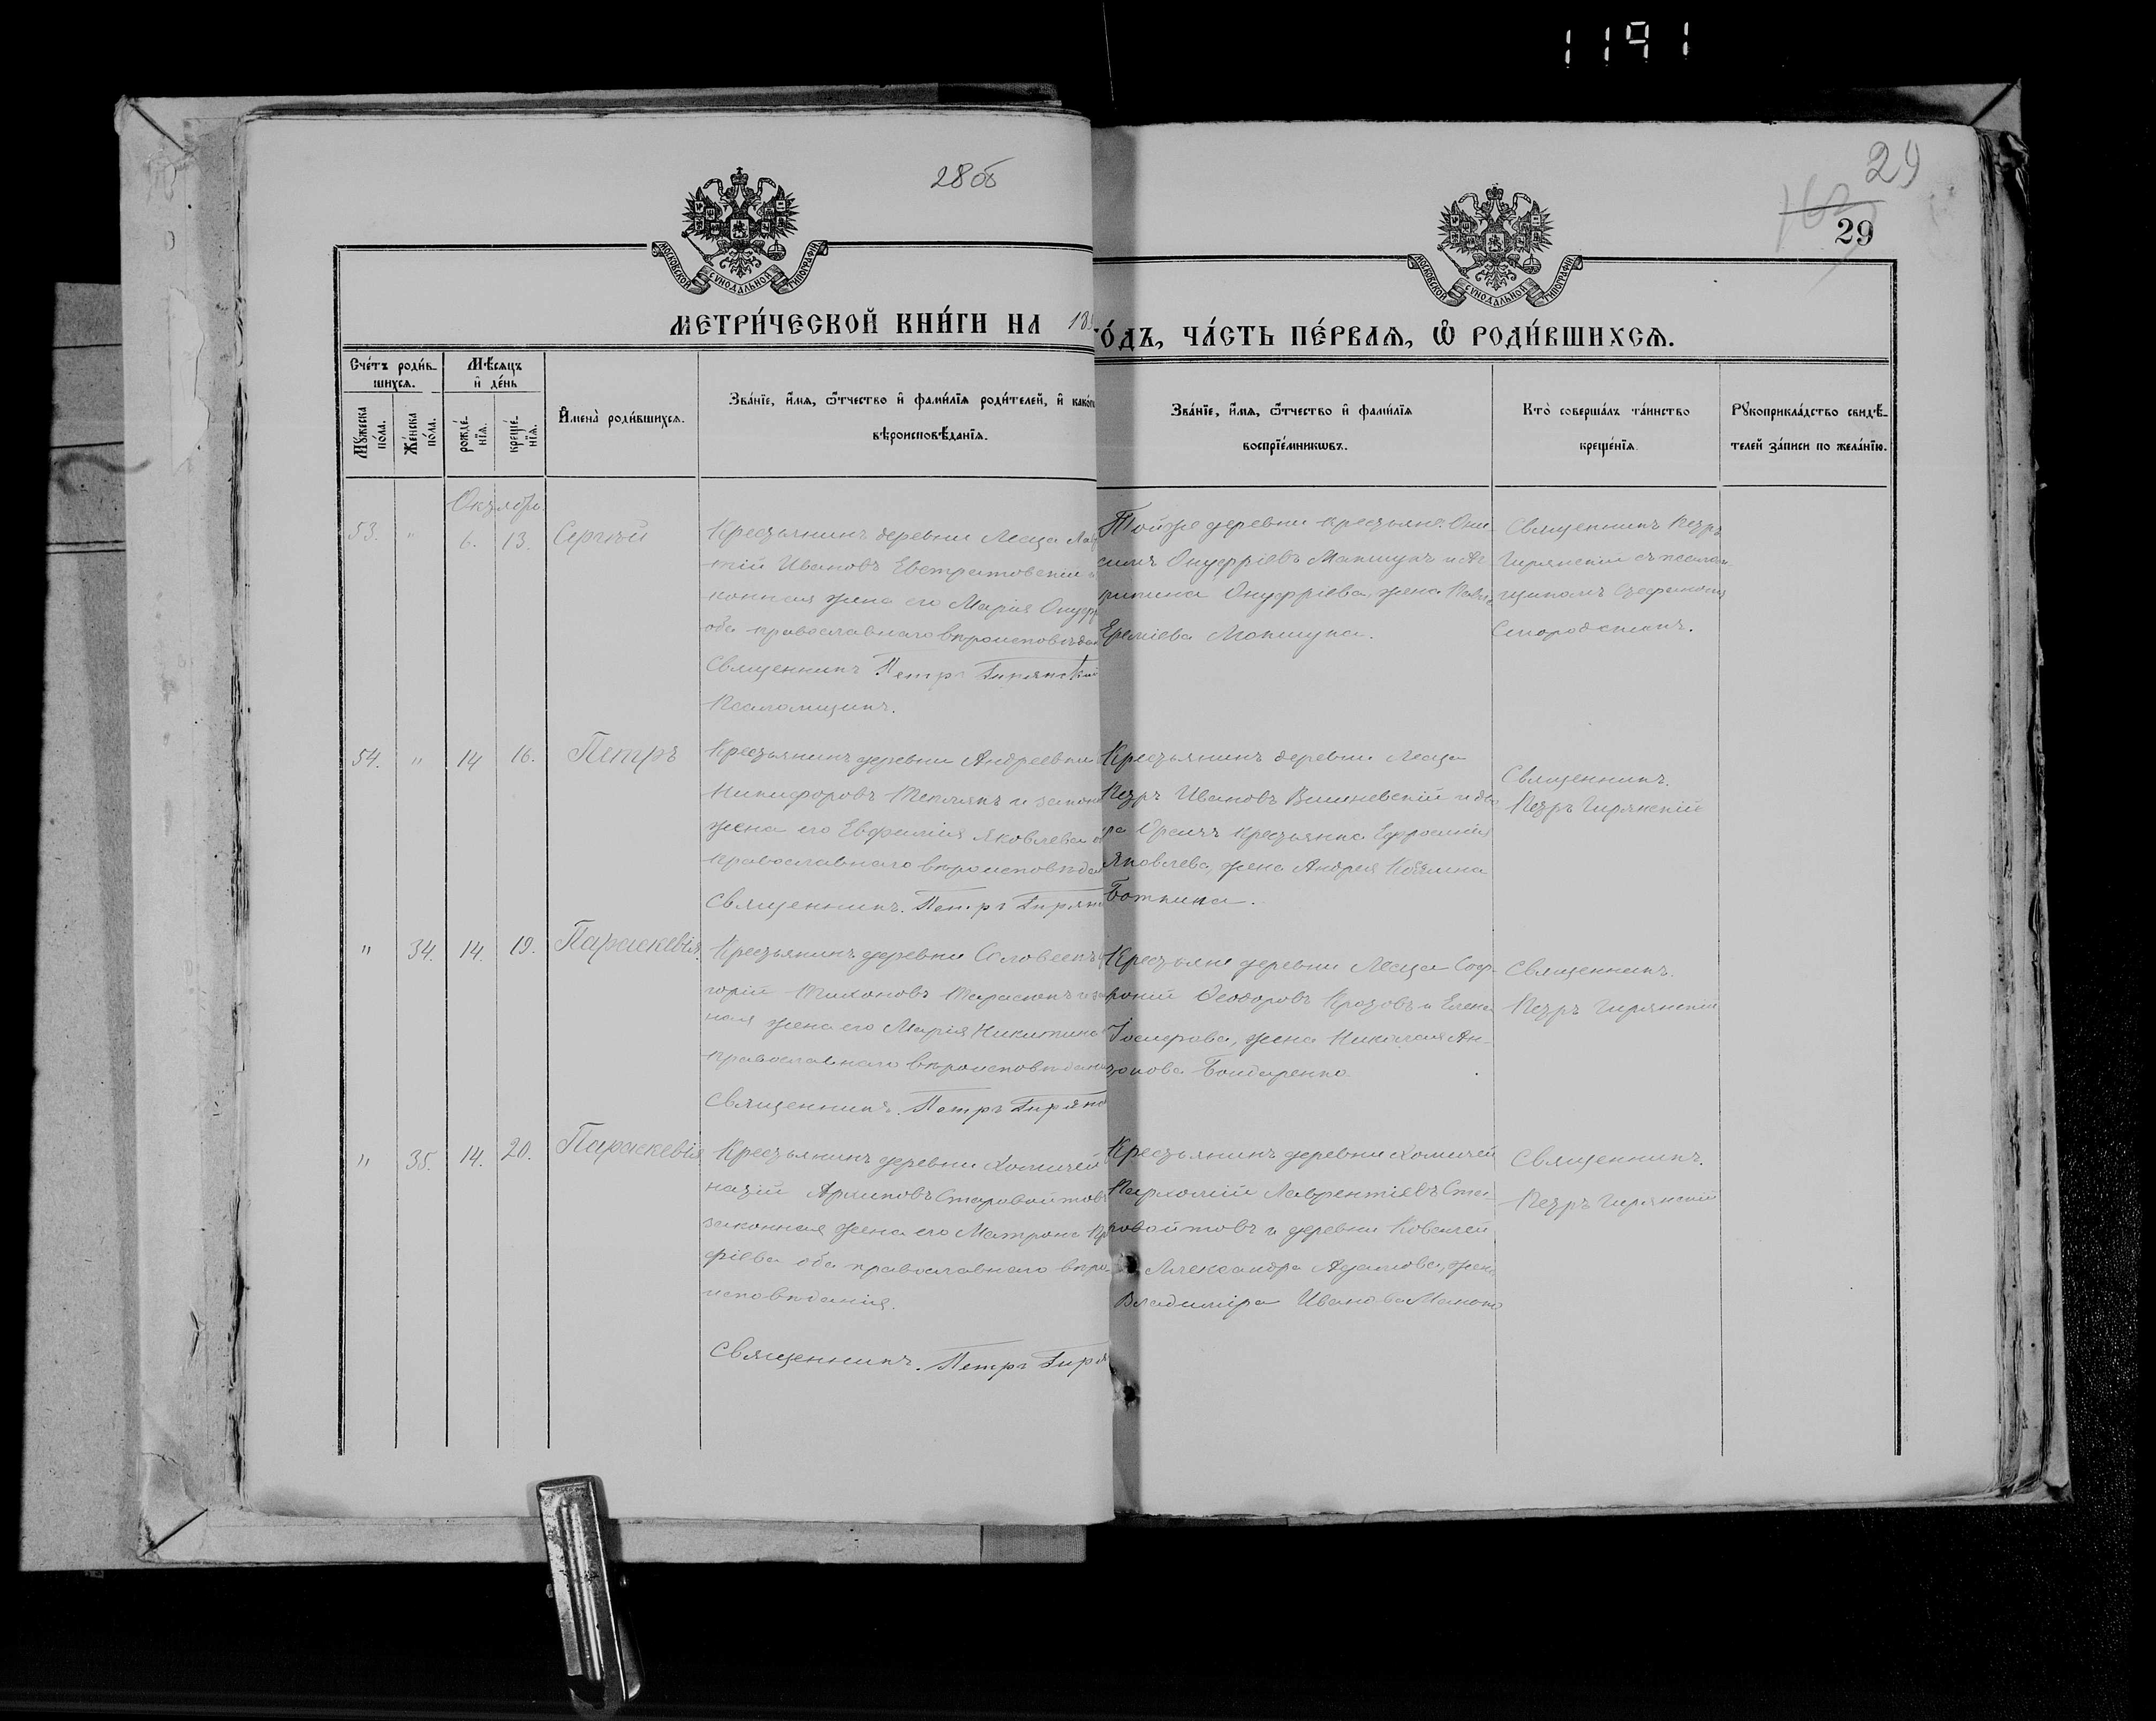 1191
28 об
29
29
МОСКОВСКОЙ СУНОДАЛЬНОЙ ТИПОГРАФІИ
МОСКОВСКОЙ СУНОДАЛЬНОЙ ТИПОГРАФІИ
МЕТРИ́ЧЕСКОЙ КНИ́ГИ НА 18
О́ДЪ, ЧА́СТЬ ПЕ́РВАЯ, Ѡ РОДИ́ВШИХСЯ.
Сче́тъ роди́в-
шихся.
Мѣ́сяцъ
и де́нь
Мꙋ́жеска
по́ла.
Же́нска
по́ла.
рожде́-
нїя.
креще́-
нїя.
Имена̀ роди́вшихся.
Зва́нїе, и́мя, ѻ́тчество и фами́лїя роди́телей, и како́г
вѣроисповѣ́данїя.
Зва́нїе, и́мя, ѻ́тчество и фами́лїя
воспрїе́мникѡвъ.
Кто̀ соверша́лъ та́инство
креще́нїя.
Рꙋкоприкла́дство свидѣ́-
телей за́писи по жела́нїю.
Октябрь
53. " 6. 13. Сергѣй
Крестьянинъ деревни Леща
тій Ивановъ Евстратовскій и
конная жена его Марія Онуфр
оба православнаго вѣроисповѣдан
Священникъ Петръ Гирянскій
Псаломщикъ.
Тойже деревни крестьяне: Они-
симъ Онуфріевъ Мапшукъ и
Онуфріева, жена
Ереміева Мапшука.
Священникъ Петръ
Гирянскій съ псалом-
щикомъ
54. " 14 16. Петръ
Крестьянинъ деревни Андреевки
Никифоровъ и закон
жена его Евфимія Яковлева о
православнаго вѣроисповѣдан
Священникъ. Петръ Гирян
Крестьянинъ деревни Леща
Петръ Ивановъ Вишневскій и дво
ра крестьянка Ефросинія
Яковлева, жена Андрея
Боткина.
Священникъ.
Петръ Гирянскій
" 34. 14. 19. Параскевія.
Крестьянинъ деревни Соловеекъ
горій Тихоновъ Тарасюкъ и за
ная жена его Марія Никитина
православнаго вѣроисповѣдан
Священникъ. Петръ Гирянс
Крестьяне деревни Леща Соф-
роній Ѳеодоровъ и Елена
Іосифова, жена Николая Ан-
тонова Бондаренко
Священникъ.
Петръ Гирянскій
" 35. 14. 20. Параскевія
Крестьянинъ деревни Хомичей
натій Архиповъ Старовойтовъ
законная жена его Матрона
фіева оба православнаго вѣро-
исповѣданія.
Священникъ. Петръ Гиря
Крестьянинъ деревни Хомичей
Пархомій Лаврентіевъ Ста-
ровойтовъ и деревни Ковалей
Александра Адамова, жена
Владиміра Иванова
Священникъ.
Петръ Гирянскій